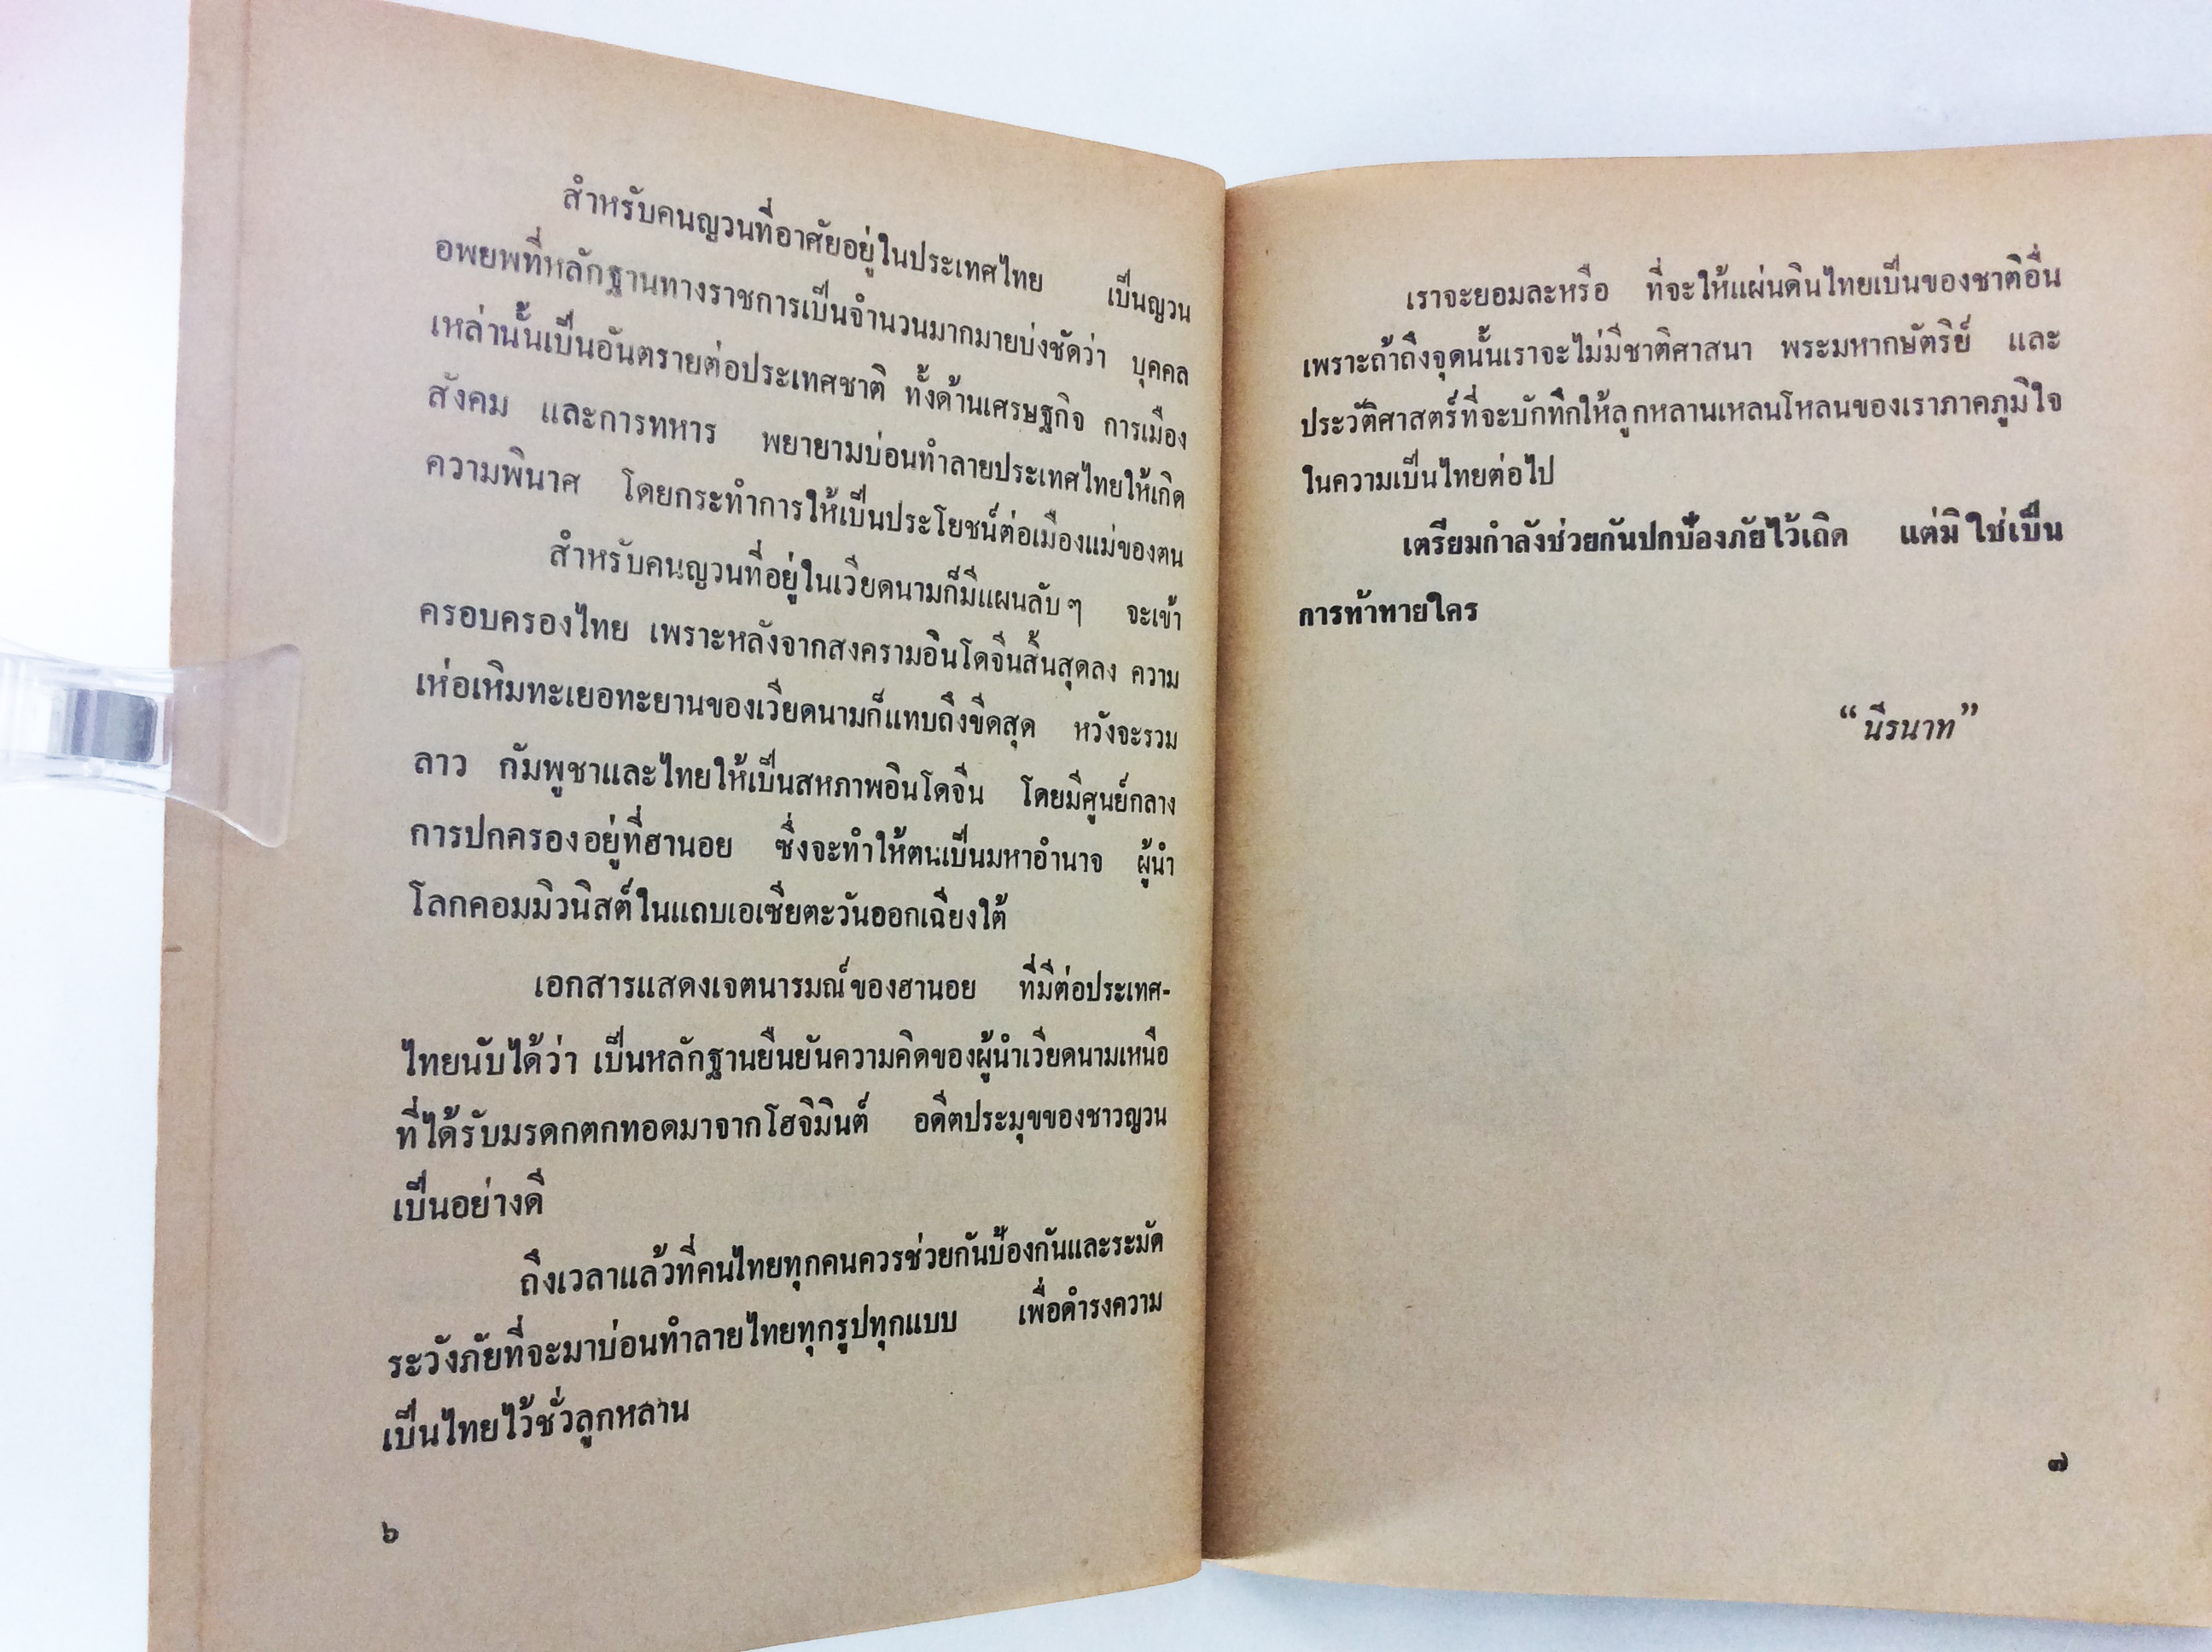 สำหรับคนญวนที่อาศัยอยู่ในประเทศไทย เป็นญวน
อพยพที่หลักฐานทางราชการเป็นจำนวนมากมายบ่งชัดว่า บุคคล
เหล่านั้นเป็นอันตรายต่อประเทศชาติ ทั้งด้านเศรษฐกิจ การเมือง
สังคม และการทหาร พยายามบ่อนทำลายประเทศไทยให้เกิด
ความพินาศ โดยกระทำการให้เป็นประโยชน์ต่อเมืองแม่ของตน
สำหรับคนญวนที่อยู่ในเวียดนามก็มีแผนลับๆ จะเข้า
ครอบครองไทย เพราะหลังจากสงครามอินโดจีนสิ้นสุดลง ความ
เห่อเหิมทะเยอทะยานของเวียดนามก็แทบถึงขีดสุด หวังจะรวม
ลาว กัมพูชาและไทยให้เป็นสหภาพอินโดจีน โดยมีศูนย์กลาง
การปกครองอยู่ที่ฮานอย ซึ่งจะทำให้ตนเป็นมหาอำนาจ ผู้นำ
โลกคอมมิวนิสต์ในแถบเอเซียตะวันออกเฉียงใต้
เอกสารแสดงเจตนารมณ์ของฮานอย ที่มีต่อประเทศ-
ไทยนับได้ว่า เป็นหลักฐานยืนยันความคิดของผู้นำเวียดนามเหนือ
ที่ได้รับมรดกตกทอดมาจากโฮจิมินต์ อดีตประมุขของชาวญวน
เป็นอย่างดี
ถึงเวลาแล้วที่คนไทยทุกคนควรช่วยกันป้องกันและระมัด
ระวังภัยที่จะมาบ่อนทำลายไทยทุกรูปทุกแบบ เพื่อดำรงความ
เป็นไทยไว้ชั่วลูกหลาน
๖
เราจะยอมละหรือ ที่จะให้แผ่นดินไทยเป็นของชาติอื่น
เพราะถ้าถึงจุดนั้นเราจะไม่มีชาติศาสนา พระมหากษัตริย์ และ
ประวัติศาสตร์ที่จะบักทึกให้ลูกหลานเหลนโหลนของเราภาคภูมิใจ
ในความเป็นไทยต่อไป
เตรียมกำลังช่วยกันปกป้องภัยไว้เถิด แต่มิใช่เป็น
การท้าทายใคร
“นีรนาท”
๗